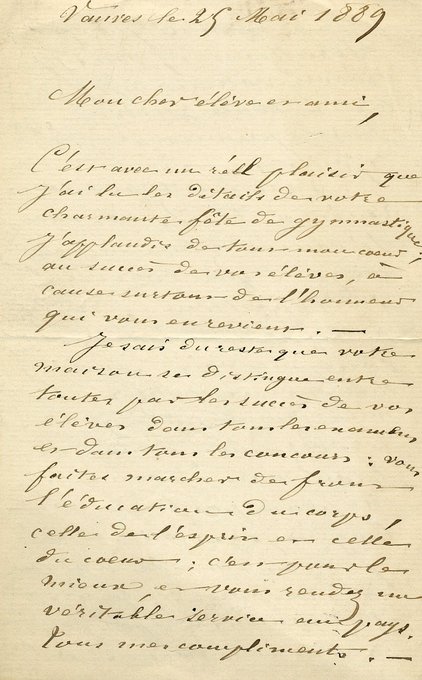 Vanves le 25 Mai 1889
Mon cher élève et ami,
C'est avec un réel plaisir que
j'ai lu les détails de votre
charmante fête de gymnastique;
j'applaudis de tout mon coeur
au succès de vos élèves, à
cause surtout de l'honneur
qui vous en revient. —
Je sais du reste que votre
maison se distingue entre
toutes par les succès de vos
élèves dans tous les examens
et dans tous les concours : vous
faites marcher de front
l'éducation du corps,
celle de l'esprit et celle
du coeur ; c'est pour le
mieux, et vous rendez un
véritable service au pays.
Tous mes compliments. —